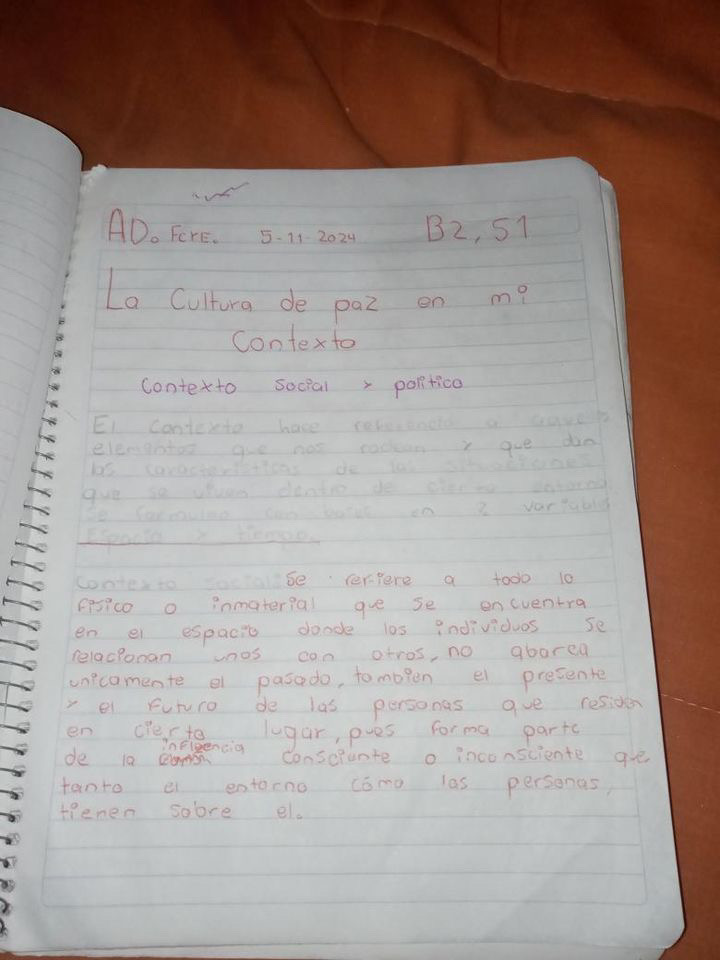 AD. FCYE. 5-11-2024 B2, S1
La Cultura de paz en mi
Contexto
Contexto social y politico
El contexto hace referencia a
elementos que nos rodean y que dan
las caracteristicas de las situaciones
que se viven dentro de cierto entorno.
Se con en 2 variables
Espacio y tiempo.
Contexto social: Se refiere a todo lo
fisico o inmaterial que se encuentra
en el espacio donde los individuos se
relacionan unos con otros, no abarca
unicamente el pasado, tambien el presente
y el futuro de las personas que residen
en cierto lugar, pues forma parte
de la infleencia consciante o inconsciente que
tanto el entorno cómo las personas,
tienen sobre el.